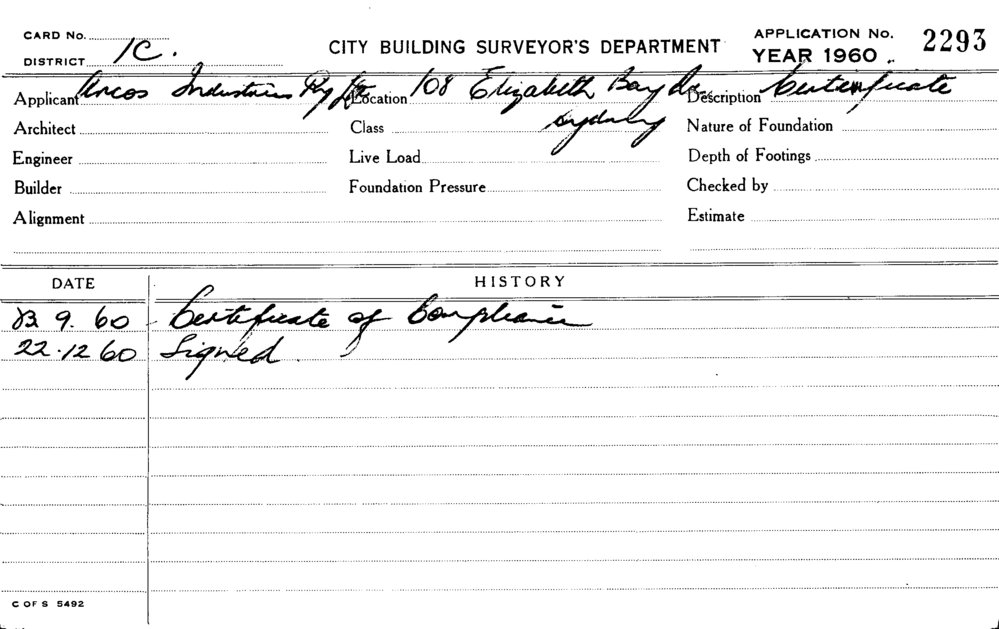 CARD No.
DISTRICT 1C.
CITY BUILDING SURVEYOR'S DEPARTMENT
APPLICATION No. 2293
YEAR 1960
Applicant Arcos Industries Pty Ltd Location 108 Elizabeth Bay Description Certificate
Architect Class Sydney Nature of Foundation
Engineer Live Load Depth of Footings
Builder Foundation Pressure Checked by
Alignment Estimate
DATE HISTORY
9. 60 Certificate of Compliance
22.12 60 Signed.
C OF S 5492